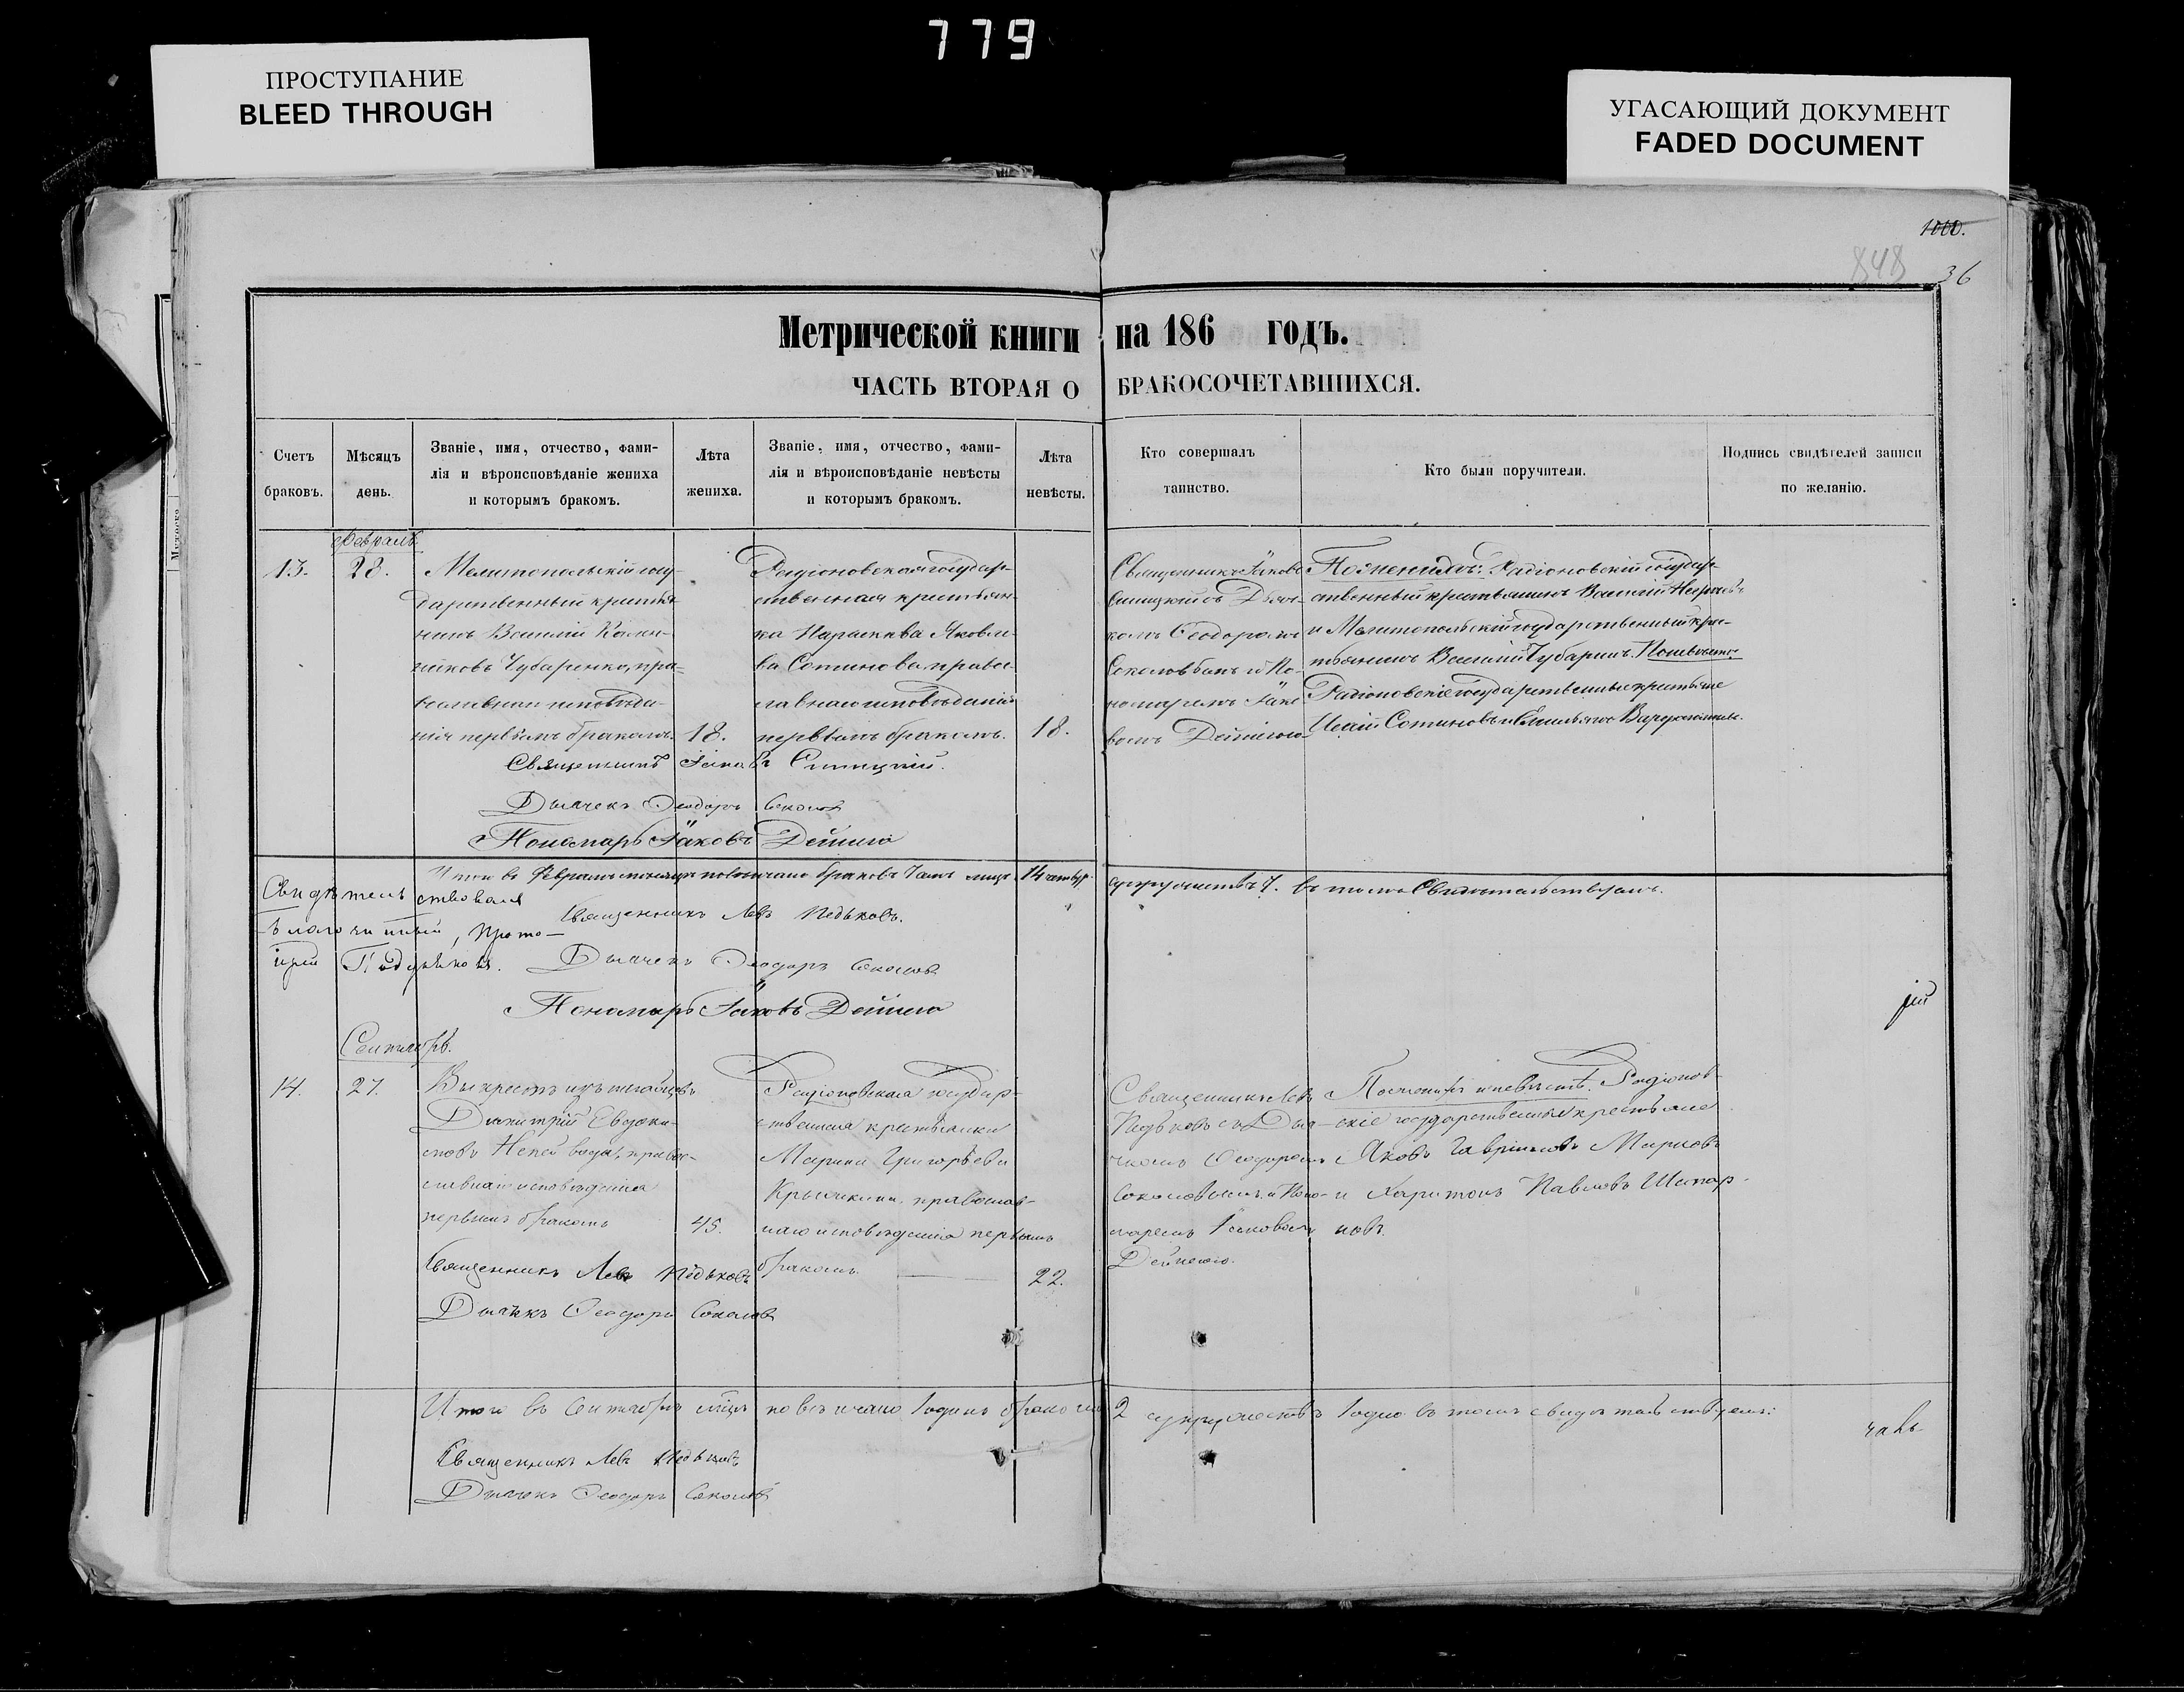 779
ПРОСТУПАНИЕ
BLEED THROUGH
УГАСАЮЩИЙ ДОКУМЕНТ
FADED DOCUMENT
1000.
848
36
Метрической книги на 186 годъ.
ЧАСТЬ ВТОРАЯ О БРАКОСОЧЕТАВШИХСЯ.
Счетъ браковъ.
Мѣсяцъ день.
Званіе, имя, отчество, фами-
лія и вѣроисповѣданіе жениха
и которымъ бракомъ.
Лѣта жениха.
Званіе, имя, отчество, фами-
лія и вѣроисповѣданіе невѣсты
и которымъ бракомъ.
Лѣта невѣсты.
Кто совершалъ таинство.
Кто были поручители.
Подпись свидѣтелей записи
по желанію.
Февраль
13.
28.
Мелитопольскій госу-
дарственный крестья-
нинъ Василій
Чубаренко, пра-
вославнаго исповѣда-
нія первымъ бракомъ.
18.
Радіоновская государ-
ственная крестьян-
ка Параскева Яковле-
ва Сотникова правос-
лавнаго исповѣданія
первымъ бракомъ.
18.
Священникъ Іаковъ
Синицкій съ Дьяч-
комъ Ѳеодоромъ
Соколовымъ и По-
номаремъ Іако-
вомъ Дейнегою
По женихѣ: Радіоновскій государ-
ственный крестьянинъ Василій
и Мелитопольскій государственный кре-
стьянинъ Василій Чубаринъ. По невѣсте:
Радіоновскіе государственные крестьяне
Сотниковъ и Емельянъ
Священникъ Іаковъ Синицкій.
Дьячекъ Ѳеодоръ Соколовъ
Пономарь Іаковъ Дейнега
Итого въ Февралѣ месяцѣ повенчано браковъ 7 лицъ 14
супружествъ 7. въ томъ Свидѣтельствуемъ.
Свидѣтельствовалъ
Благочинный, Прото-
іерей
Священникъ Левъ Педьковъ.
Дьячекъ Ѳеодоръ Соколовъ
Пономарь Іаковъ Дейнега
Сентябрь.
14.
27.
Выкрестъ изъ
Димитрій Евдоки-
мовъ Непейвода, правос-
лавнаго исповѣданія
первымъ бракомъ
45.
Радіоновская государ-
ственная крестьянка
Марина Григорьева
православ-
наго исповѣданія первымъ
бракомъ.
22.
Священникъ Левъ
Педьковъ съ Дья-
чкомъ Ѳеодоромъ
Соколовымъ и Поно-
маремъ Іаковомъ
Дейнегою.
По женихѣ и невѣстѣ: Радіонов-
скіе государственные крестьяне
Яковъ Гавриловъ Марковъ
и Харитонъ Павловъ
Священникъ Левъ Педьковъ
Дьячекъ Ѳеодоръ Соколовъ
Итого въ Сентябрѣ мѣцѣ повенчано 1 одинъ бракъ
2 супружествъ 1 одно въ томъ свидѣтельствуемъ:
Священникъ Левъ Педьковъ
Дьячекъ Ѳеодоръ Соколовъ